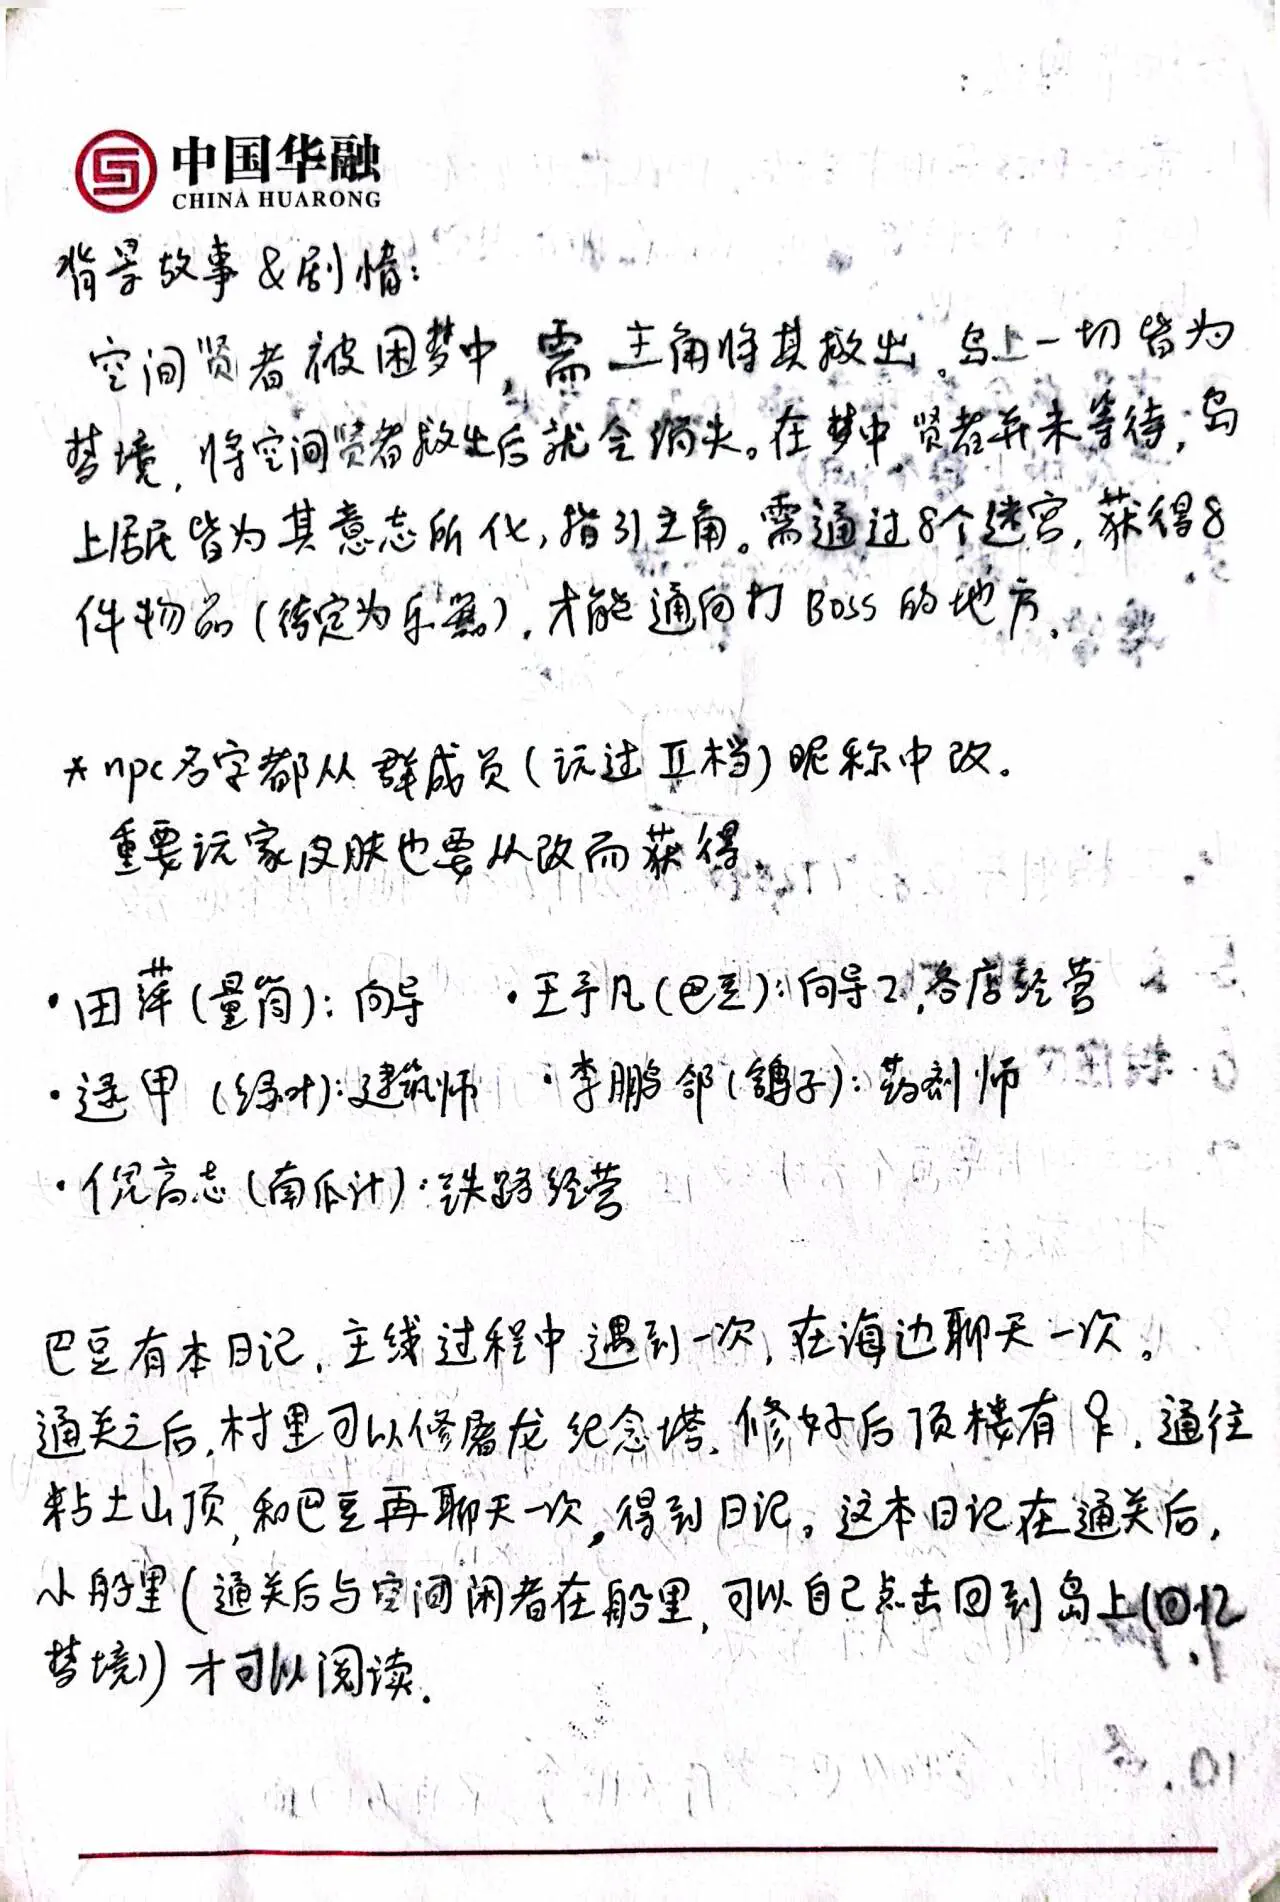 中国华融
CHINA HUARONG
背景故事&剧情:
空间贤者被困梦中,需主角将其救出。岛上一切皆为
梦境,将空间贤者救出后就会消失。在梦中,贤者并未等待,岛
上居民皆为其意志所化,指引主角。需通过8个迷宫,获得8
件物品(待定为乐器),才能通向打Boss的地方.
*npc名字都从群成员(玩过Ⅱ档)昵称中改.
重要玩家皮肤也要从改而获得.
·田萍(量筒):向导 ·王予凡(巴豆):向导2,各店经营
·逯甲(绿叶):建筑师 ·李鹏邻(鸽子):药剂师
·倪高志(南瓜汁):铁路经营
巴豆有本日记,主线过程中遇到一次,在海边聊天一次.
通关之后,村里可以修屠龙纪念塔.修好后顶楼有,通往
粘土山顶,和巴豆再聊天一次,得到日记。这本日记在通关后,
小船里(通关后与空间闲者在船里,可以自己点击回到岛上(回忆
梦境))才可以阅读.
10.